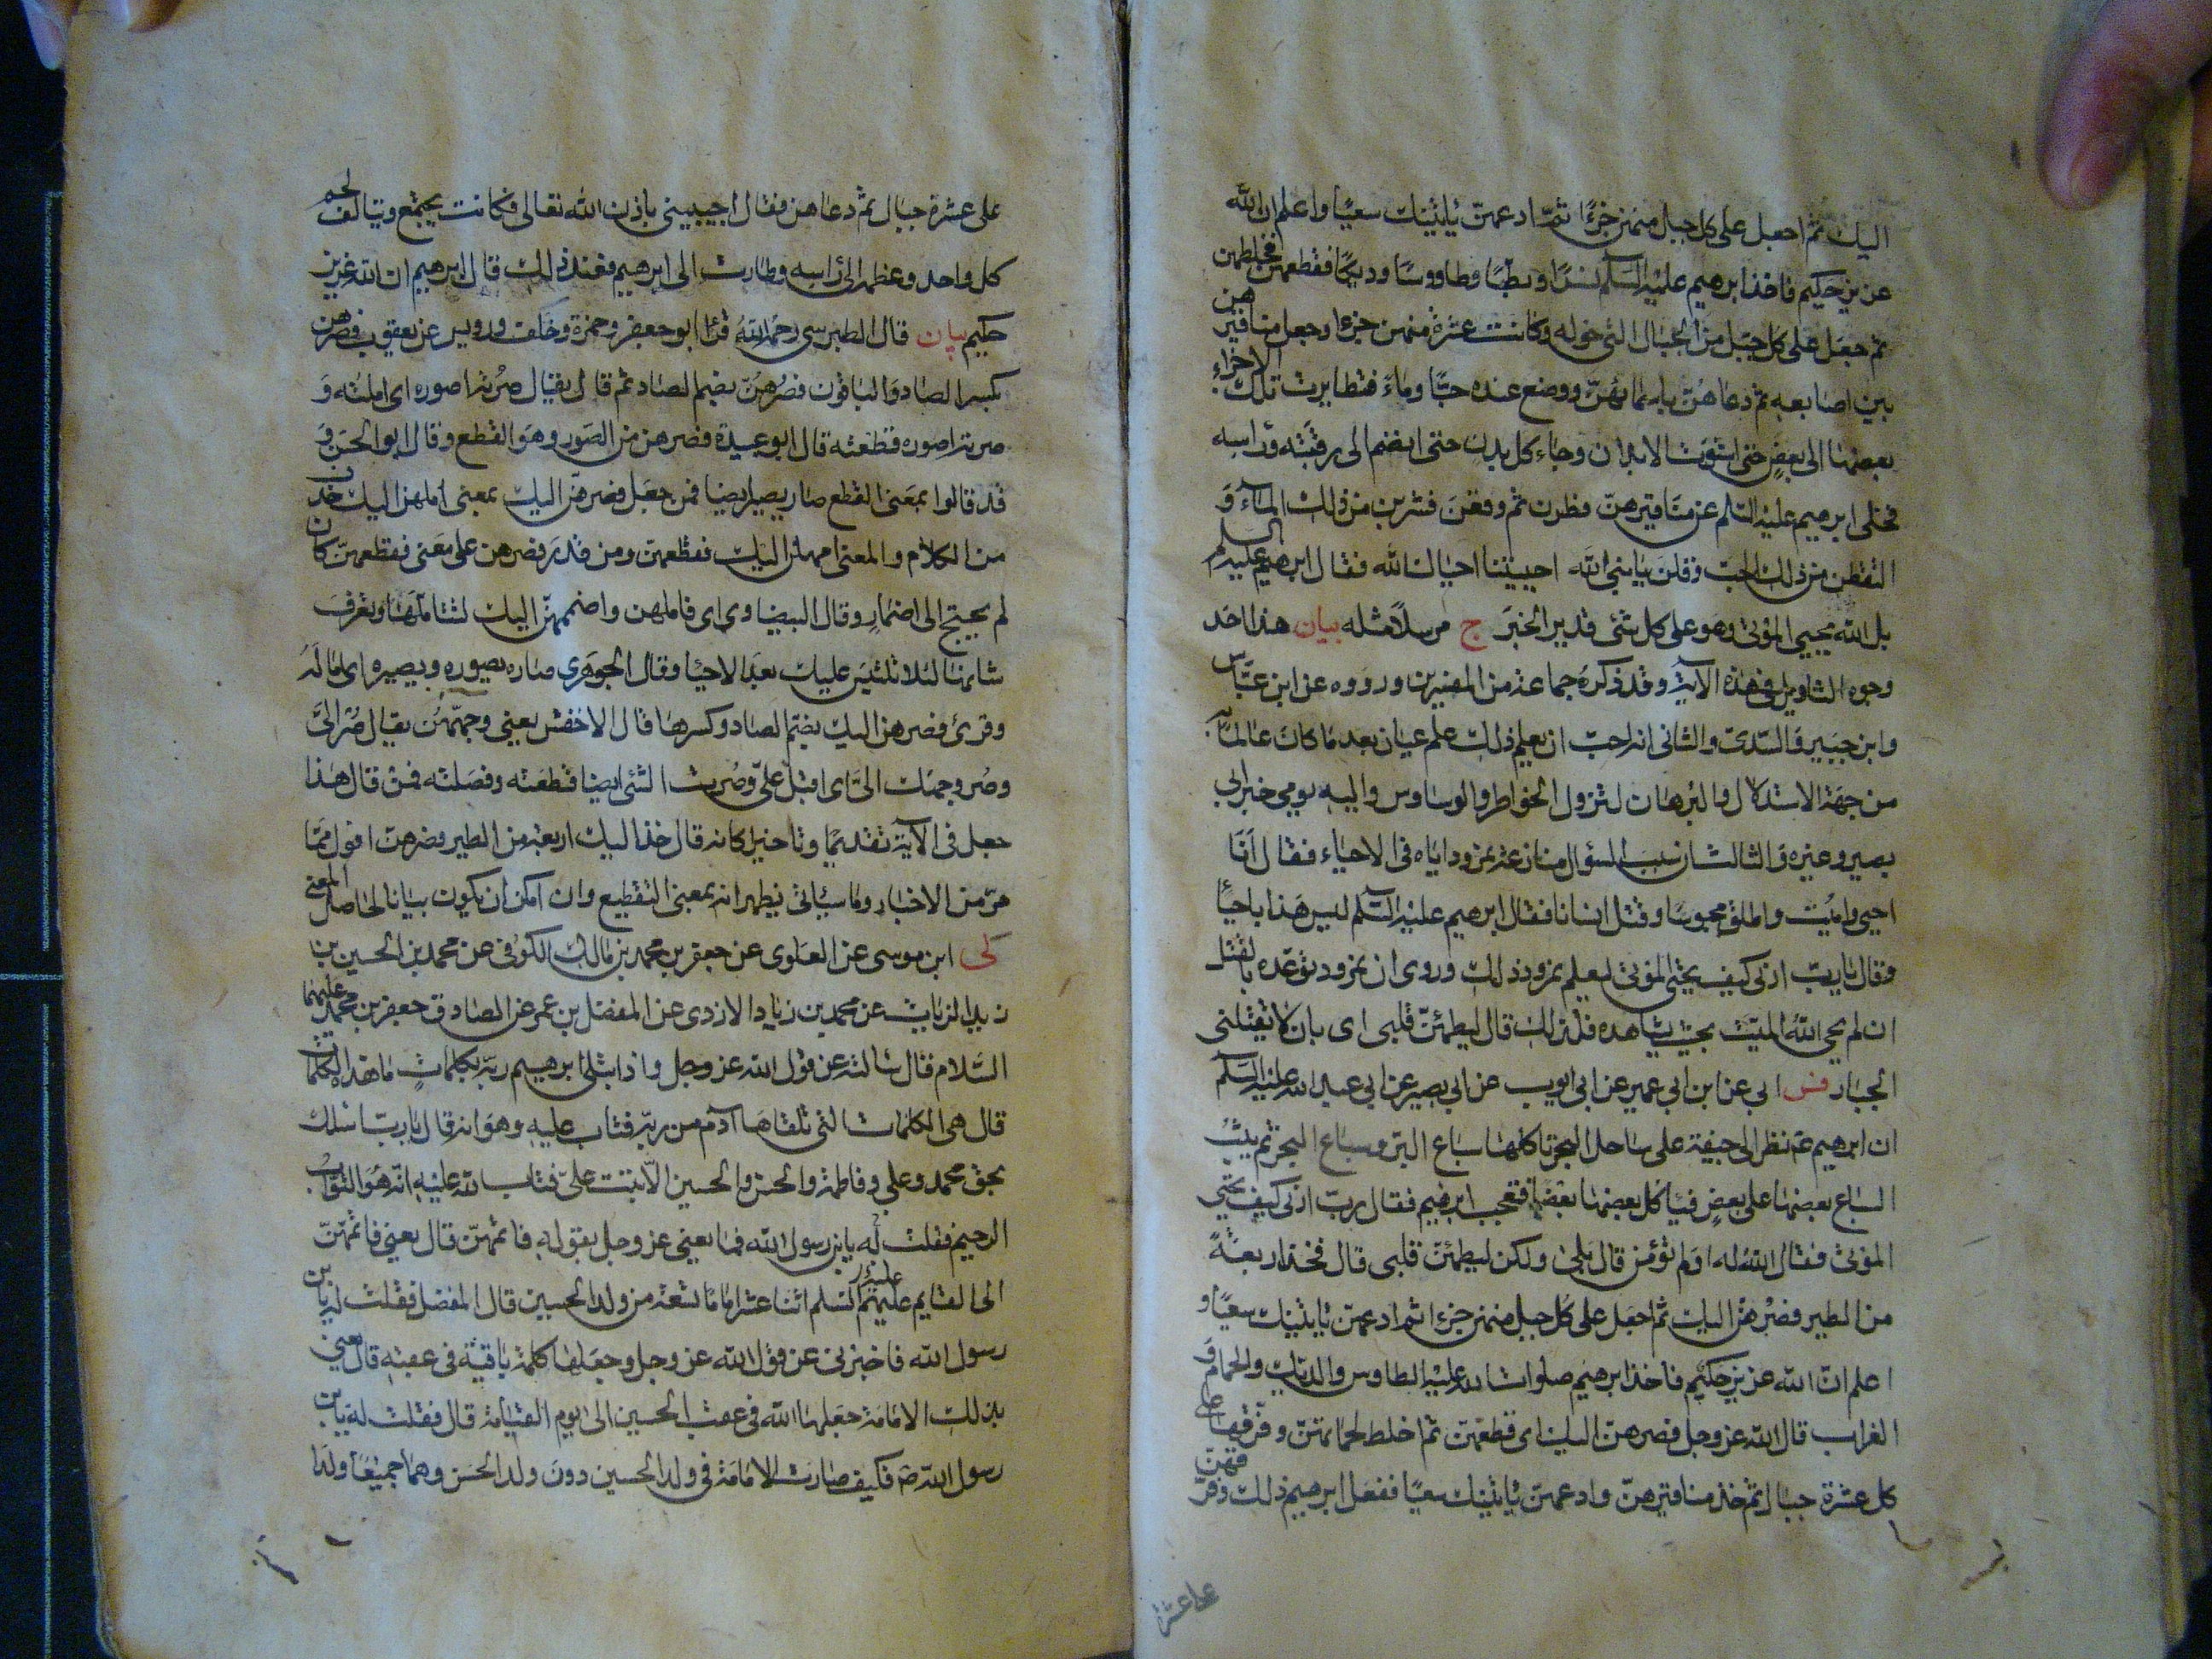 اليك ثم اجعل على كل جبل منهن جزءًا ثمّ ادعهنّ يأتينك سعيًا واعلم ان الله
عزيز حكيم فاخذ ابرهيم عليه السّلم نسرًا وبطًّا وطاووسًا وديكًا فقطعهنّ فخلطهن
ثم جعل على كل جبل من الجبال التى حوله وكانت عشرة منهن جزءا وجعل مناقيرهن
بين اصابعه ثم دعاهنّ باسمائهنّ ووضع عنده حبًّا وماءً فتطايرت تلك الاجزاء
بعضها الى بعض حتى استوت الابدان وجاء كل بدن حتى انضم الى رقبته وراسه
فخلى ابرهيم عليه السّلم عن مناقيرهنّ فطرن ثم وقعن فشربن من ذلك الماء و
التقطن من ذلك الحبّ وقلن يا نبى الله احييتنا احياك الله فقال ابرهيم عليه السلم
بل الله يحيي الموتى وهو على كل شئ قدير الخبر ج مرسلاً مثله بيان هذا احد
وجوه التاويل فى هذه الآية وقد ذكره جماعة من المفسرين ورووه عن ابن عبّاس
وابن جبير والسّدىّ والثانى انه احبّ ان يعلم ذلك علم عيان بعد ما كان عالمًا به
من جهة الاستدلال والبرهان لتزول الخواطر والوساوس واليه يومي خبر ابى
بصير وغيره والثالث ان سبب السؤال منازعة نمرود اياه فى الاحياء فقال انَا
احيى واميت واطلق محبوسًا وقتل انسانا فقال ابرهيم عليه السّلم ليس هذا باحياءٍ
وقال يا ربّ ارنى كيف يحيى الموتى ليعلم نمرود ذلك وروى ان نمرود توعّده بالقتل
ان لم يحى الله الميّت بحيث يشاهده فلذلك قال ليطمئنّ قلبى اى بان لا يقتلنى
الجبار فس ابى عن ابن ابي عمير عن ابى ايوب عن ابي بصير عن ابي عبد الله عليه السّلم
ان ابرهيم ع نظر الى جيفة على ساحل البحر تاكلها سباع البرّ وسباع البحر ثم يثب
السباع بعضها على بعضٍ فياكل بعضها بعضًا فتعجب ابرهيم فقال ربّ ارنى كيف تحيي
الموتى فقال الله له اولم تؤمن قال بلى ولكن ليطمئنّ قلبى قال فخذ اربعةً
من الطير فصرهنّ اليك ثم اجعل على كل جبل منهن جزءا ثم ادعهنّ ياتينك سعيًا و
اعلم انّ الله عزيز حكيم فاخذ ابرهيم صلوات الله عليه الطاوس والديك والحمام و
الغراب قال الله عز وجل فصرهنّ اليك اى قطعهنّ ثم اخلط لحماتهنّ وفرّقها على
كل عشرة جبال ثم خذ مناقيرهنّ وادعهنّ ياتينك سعيًا ففعل ابرهيم ذلك وفرّقهنّ
على عشرة
على عشرة جبال ثم دعاهن فقال اجيبينى باذن الله تعالى فكانت يجتمع ويتالف لحم
كل واحد وعظمه الى راسه وطارت الى ابرهيم فعند ذلك قال ابرهيم ان الله عزيز
حكيم بيان قال الطبرسى رحمه الله قرأ ابو جعفر وحمزة وخلف ورويس عن يعقوب فصرهن
بكسر الصاد والباقون فصُرهنّ بضم الصاد ثم قال يقال صُرته اصوره اى املته و
صرته اصوره قطعته قال ابو عبيدة فصرهن من الصور وهو القطع وقال ابو الحسن و
قد قالوا بمعنى القطع صار يصير ايضا فمن جعل فصرهنّ اليك بمعنى املهن اليك حذف
من الكلام والمعنى املهن اليك فقطعهن ومن قدر فصرهن على معنى فقطعهنّ كان
لم يحتج الى اضمار وقال البيضاوى اى فاملهن واضممهنّ اليك لتتاملها وتعرف
شانها لئلا تلتبس عليك بعد الاحياء وقال الجوهرى صاره يصوره ويصيره اى اماله
وقرئ فصرهن اليك بضمّ الصاد وكسرها قال الاخفش يعنى وجّههُن يقال صُر الىّ
وصُر وجهك الىّ اى اقبل علىّ وصُرت الشئ ايضا قطعته وفصلته فمن قال هذا
جعل فى الآية تقديمًا وتاخيرًا كانه قال خذ اليك اربعة من الطير فصرهن اقول ممّا
مرّ من الاخبار وما سيأتى يظهر انه بمعنى التقطيع وان امكن ان يكون بيانا لحاصل المعنى
لى ابن موسى عن العلوى عن جعفر بن محمد بن مالك الكوفى عن محمد بن الحسين بن
زيد الزيات عن محمد بن زياد الازدى عن المفضل بن عمر عن الصادق جعفر بن محمد عليهما
السّلام قال سالته عن قول الله عز وجل واذ ابتلى ابرهيم ربّه بكلماتٍ ما هذه الكلمات
قال هى الكلمات التى تلقاها آدم من ربّه فتاب عليه وهو انه قال يا ربّ اسئلك
بحق محمد وعلى وفاطمة والحسن والحسين الّا تبت علىّ فتاب الله عليه انّه هو التوّاب
الرحيم فقلت له يا بن رسول الله فما يعنى عز وجل بقوله فاتمّهنّ قال يعنى فاتمّهنّ
الى القايم عليهم السّلم اثنا عشر امامًا تسعة من ولد الحسين قال المفضل فقلت له يا بن
رسول الله فاخبرنى عن قول الله عز وجل وجعلها كلمة باقية فى عقبه قال يعنى
بذلك الامامة جعلها الله فى عقب الحسين الى يوم القيامة قال فقلت له يا بن
رسول الله ص فكيف صارت الامامة فى ولد الحسين دون ولد الحسن وهما جميعًا ولدا